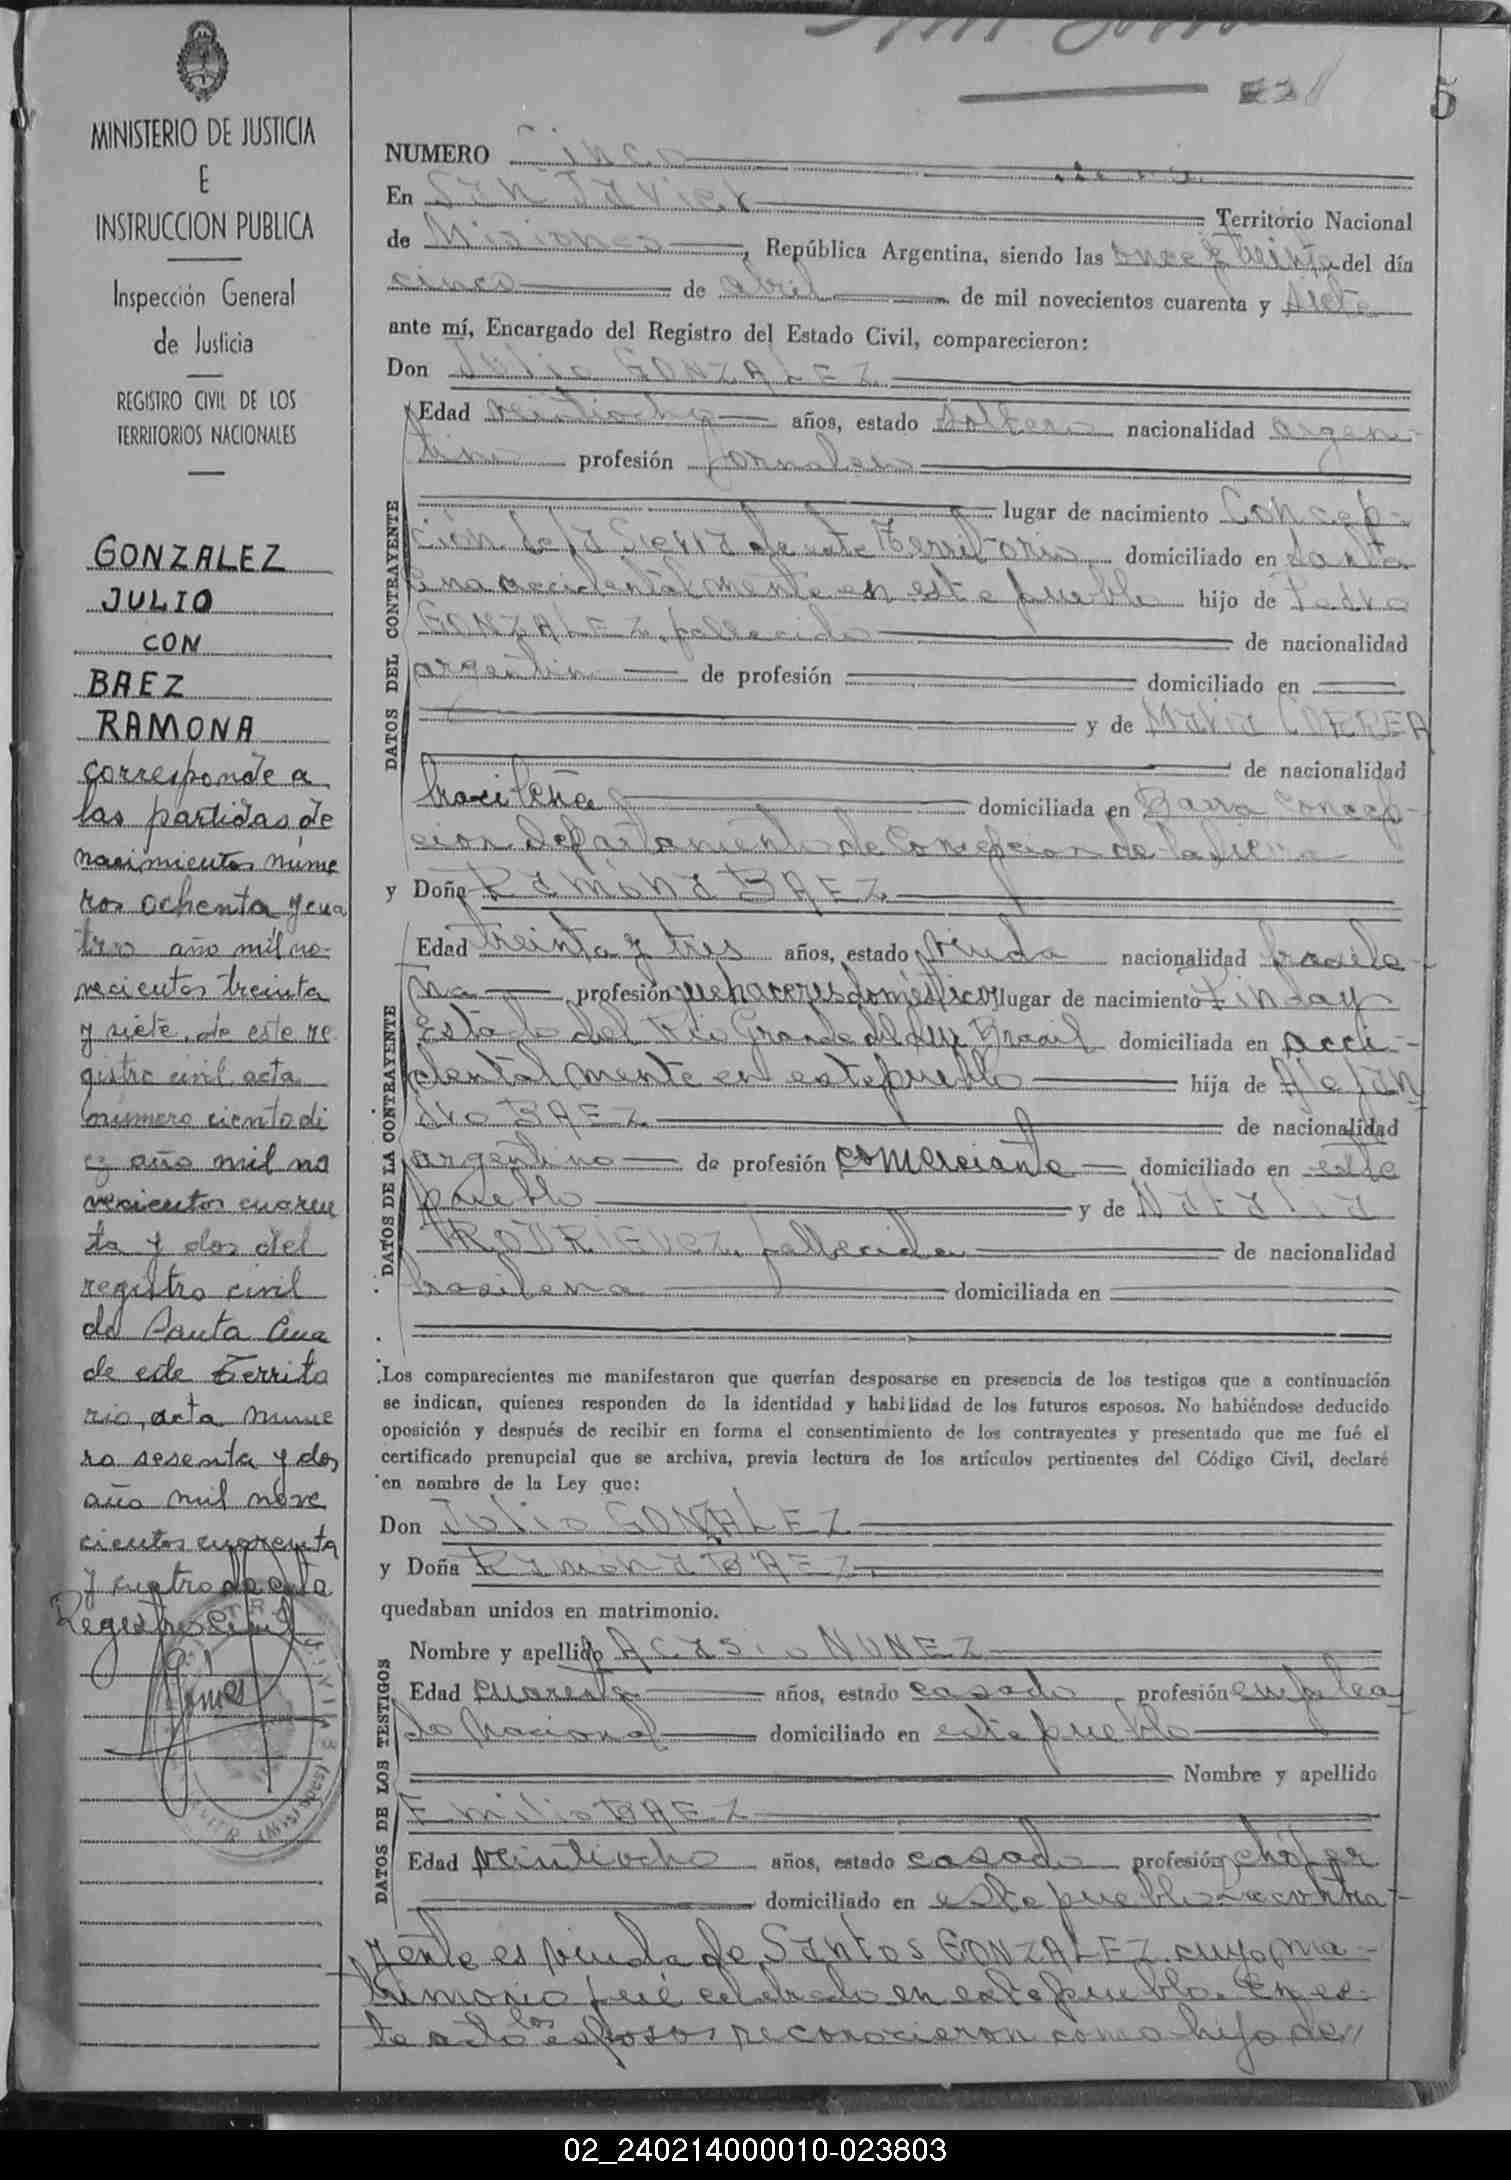 5
MINISTERIO DE JUSTICIA
E
INSTRUCCION PUBLICA
Inspección General
de Justicia
REGISTRO CIVIL DE LOS
TERRITORIOS NACIONALES
GONZALEZ
JULIO
CON
BAEZ
RAMONA
corresponde a
las partidas de
nacimientos núme
ros ochenta y cua
tro año mil no-
vecientos treinta
y siete, de este re
gistro civil acta
número ciento di
ez año mil no
vecientos cuaren
ta y dos del
registro civil
de Santa Ana
de este Territo
rio, acta nume
ro sesenta y dos
año mil nove
cientos cuarenta
y cuatro de este
Registro Civil
NUMERO Cinco
En San Javier Territorio Nacional
de Misiones, República Argentina, siendo las once y treinta del día
cinco de abril de mil novecientos cuarenta y siete
ante mí, Encargado del Registro del Estado Civil, comparecieron:
Don Julio GONZALEZ
DATOS DEL CONTRAYENTE
Edad veintiocho años, estado soltero nacionalidad argen-
tino profesión jornalero
lugar de nacimiento Concep-
ción de la Sierra de este Territorio domiciliado en Santa
Ana accidentalmente en este pueblo hijo de Pedro
GONZALEZ, fallecido de nacionalidad
argentin de profesión domiciliado en
y de Maria CORREA
de nacionalidad
brasileña domiciliada en Barra Concep-
cion Departamento de Concepcion de la Sierra
y Doña Ramona BAEZ
DATOS DE LA CONTRAYENTE
Edad treinta y tres años, estado viuda nacionalidad brasile-
ña profesión quehaceres domésticos lugar de nacimiento Pinday
Estado del Rio Grande del Sur Brasil domiciliada en acci-
dentalmente en este pueblo hija de Alejan
dro BAEZ de nacionalidad
argentino de profesión comerciante domiciliado en este
pueblo y de Natalia
RODRIGUEZ, fallecida de nacionalidad
brasilena domiciliada en
Los comparecientes me manifestaron que querían desposarse en presencia de los testigos que a continuación
se indican, quienes responden de la identidad y habilidad de los futuros esposos. No habiéndose deducido
oposición y después de recibir en forma el consentimiento de los contrayentes y presentado que me fué el
certificado prenupcial que se archiva, previa lectura de los artículos pertinentes del Código Civil, declaré
en nombre de la Ley que:
Don Julio GONZALEZ
y Doña Ramona BAEZ
quedaban unidos en matrimonio.
DATOS DE LOS TESTIGOS
Nombre y apellido Acasio NUNEZ
Edad cuarenta años, estado casado profesión emplea
do nacional domiciliado en este pueblo
Nombre y apellido
Emilio BAEZ
Edad veintiocho años, estado casado profesión chófer
domiciliado en este pueblo La contra-
yente es viuda de Santos GONZALEZ cuyo ma-
trimonio fué celebrado en este pueblo. En es-
te acto los esposos reconocieron como hijo de
02_240214000010-023803